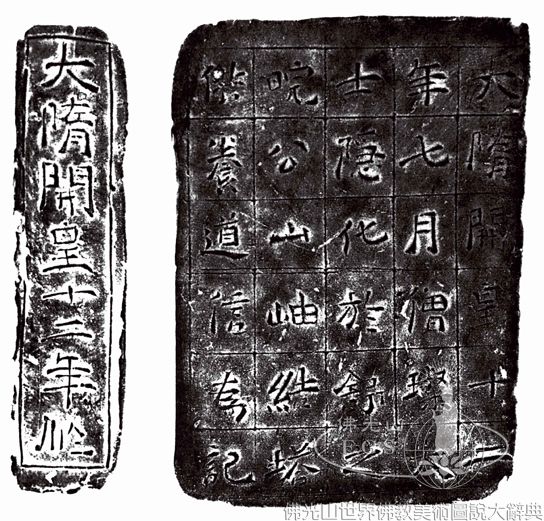 大隋開皇十二
年七月僧璨大
士隱化於舒之
皖公山岫結塔
供養道信為記
大隋開皇十二年作
佛光山世界佛教美術圖說大辭典